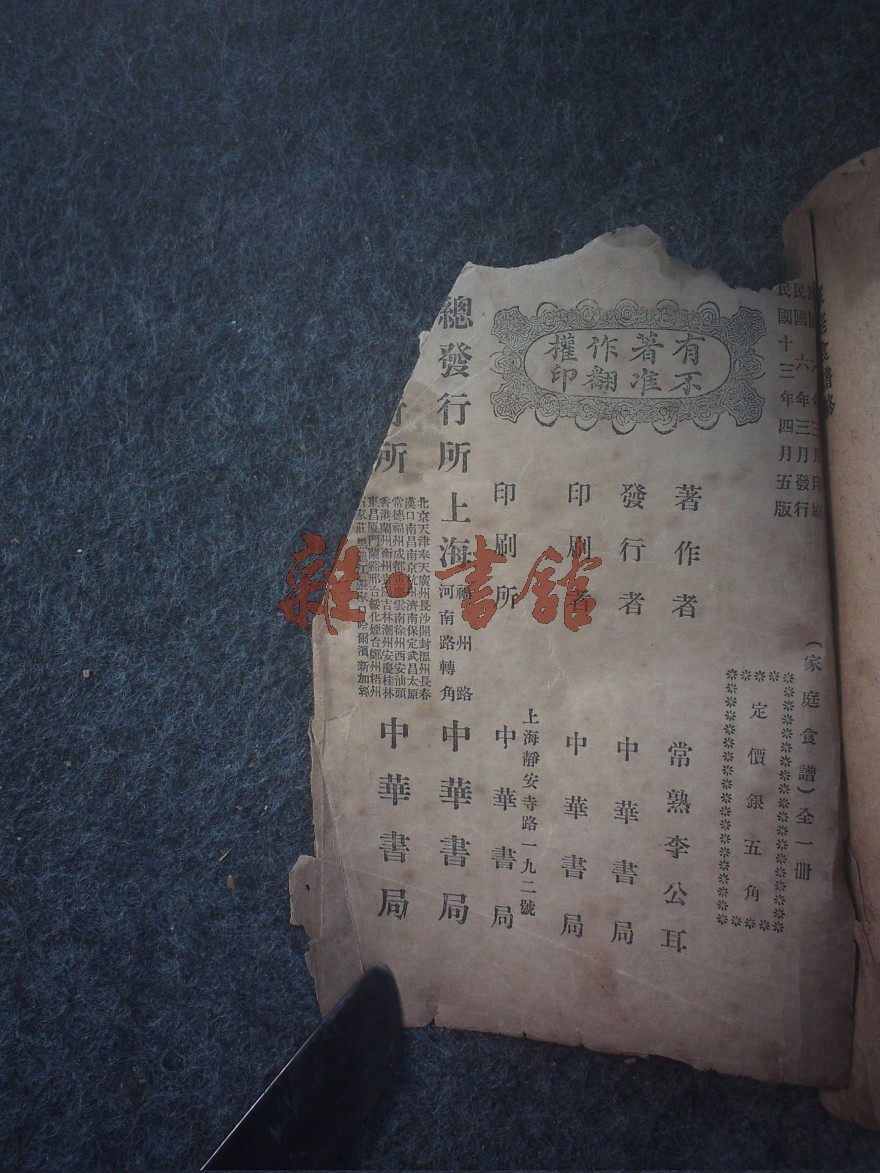 民國六年三月發行
民國十三年四月五版
(家庭食譜)全一冊
定價銀五角
有著作權
不准翻印
著作者 常熟李公耳
發行者 中華書局
印刷者 中華書局
印刷所 上海靜安寺路一九二號 中華書局
總發行所 上海福州路河南路轉角 中華書局
行所
北京天津奉天廣州長沙開封溫州長春
漢口南昌南京杭州濟南保定武昌太原
常德福州成都重慶雲南徐州西安汕頭
香港蘭州衡州 吉林潮州安慶桂林
東昌廈門蘭谿邢台綏化煙台鄭州梧州
家莊 江 哈爾濱新加坡
中華書局
雜·書館